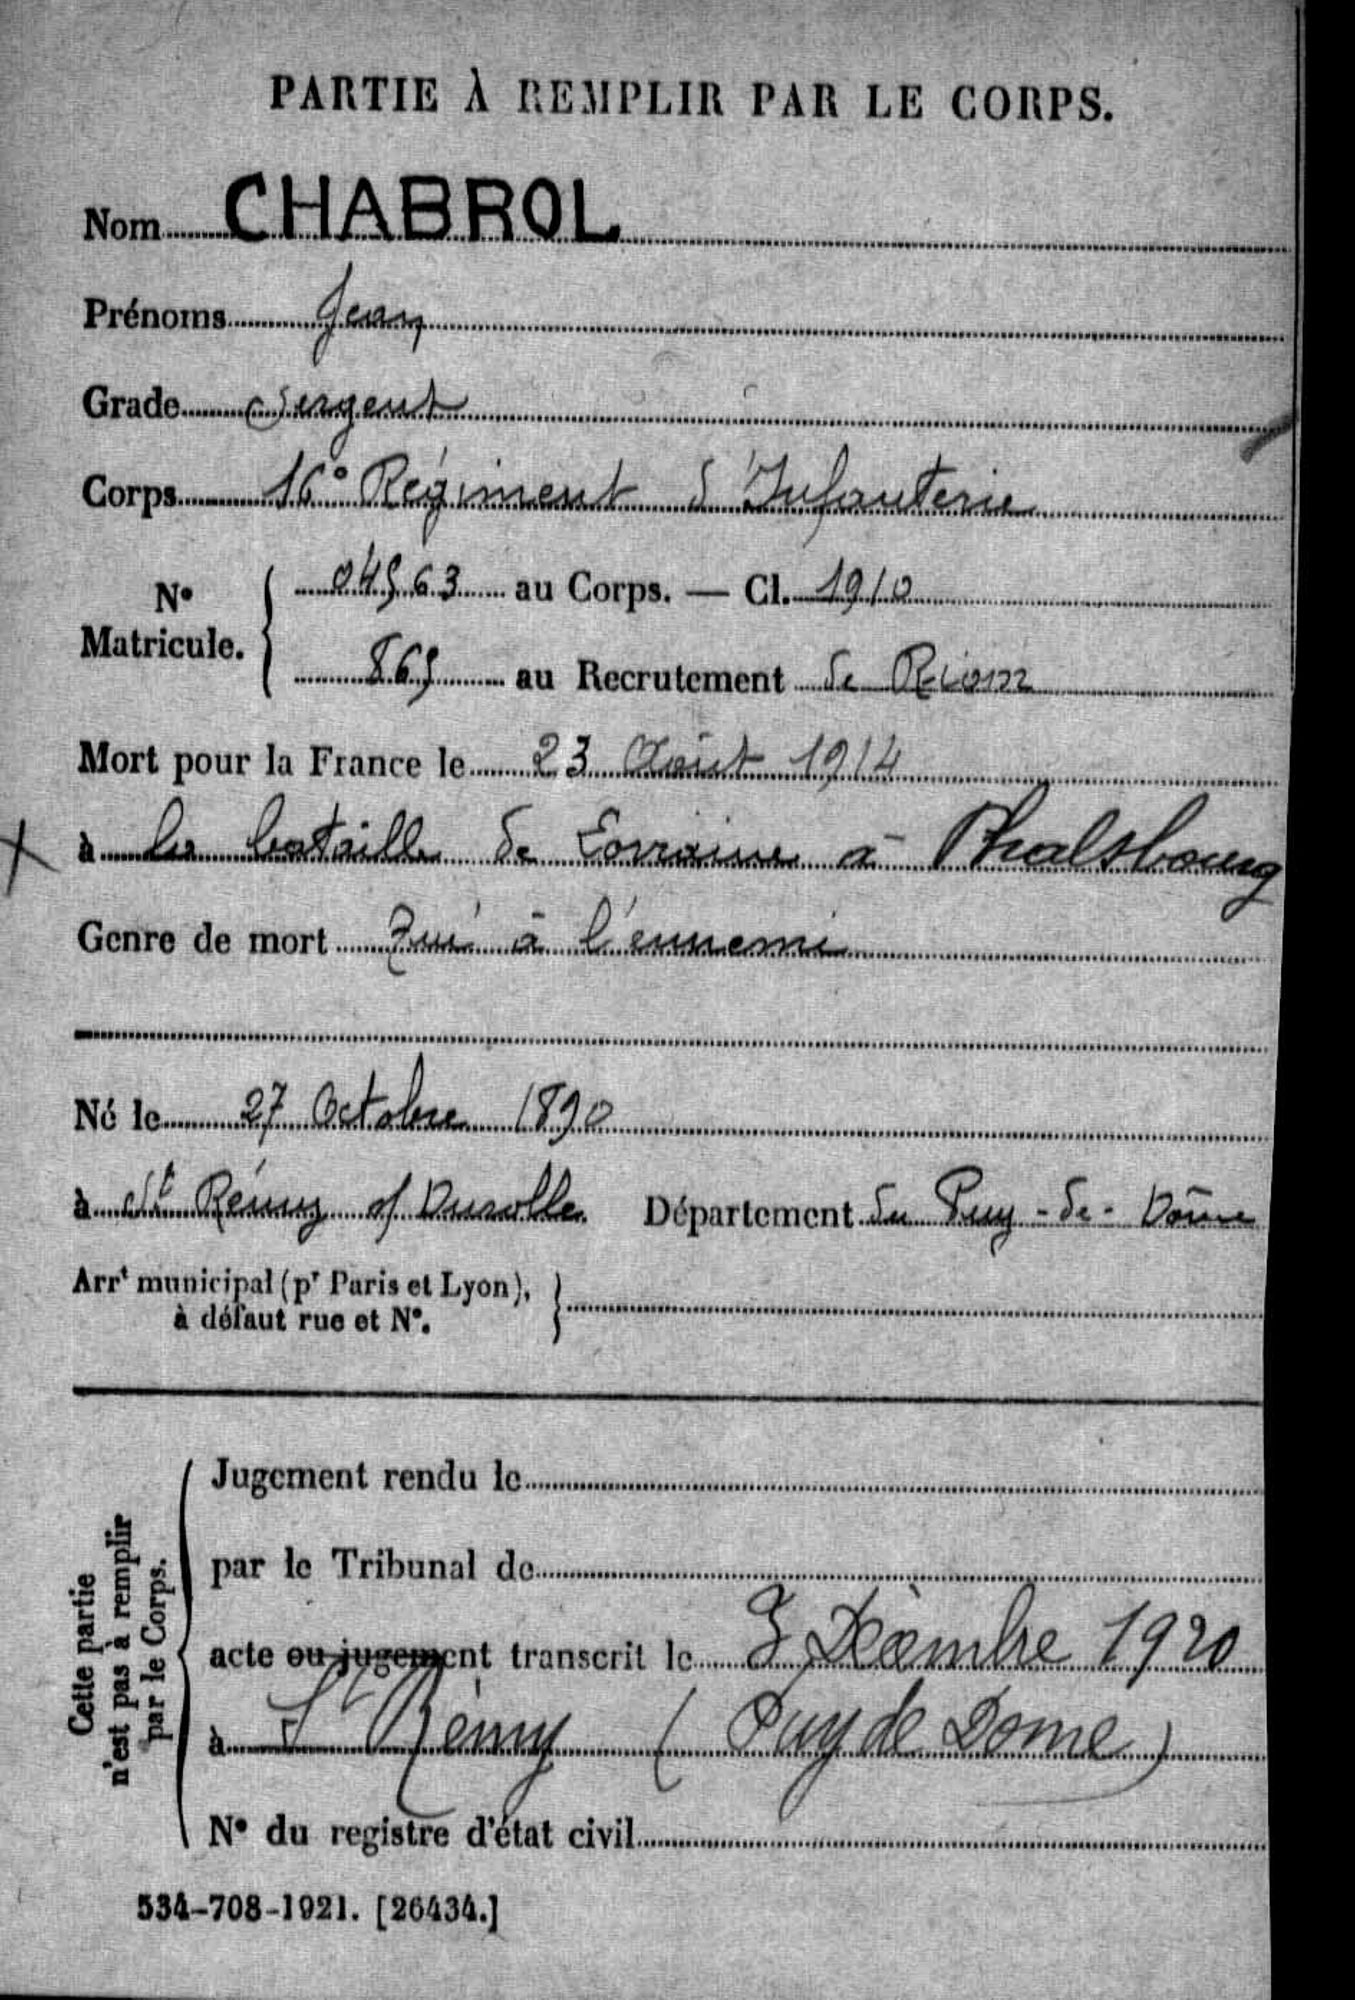 PARTIE À REMPLIR PAR LE CORPS.
Nom CHABROL
Prénoms Jean
Grade Sergent
Corps 16° Régiment d'Infanterie
N° Matricule. 04563 au Corps. — Cl. 1910
865 au Recrutement de Riom
Mort pour la France le 23 Août 1914
à la bataille de Lorraine à Phalsbourg
Genre de mort Tué à l'ennemi
Né le 27 Octobre 1890
à St Rémy s/ Durolle Département du Puy-de-Dôme
Arrt municipal (pr Paris et Lyon),
à défaut rue et N°.
Cette partie
n'est pas à remplir
par le Corps.
Jugement rendu le
par le Tribunal de
acte ou jugement transcrit le 3 Décembre 1920
à St Rémy (Puy de Dome)
N° du registre d'état civil
534-708-1921. [26434.]